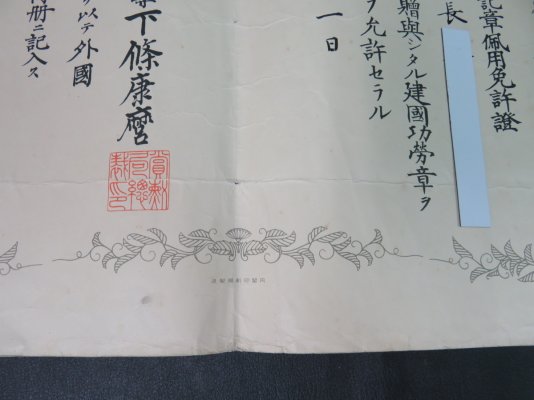 記章佩用免許證
長
贈與シタル建國功勞章ヲ
ヲ允許セラル
一日
下條康麿
以テ外國
冊ニ記入ス
賞勲
局總
裁印